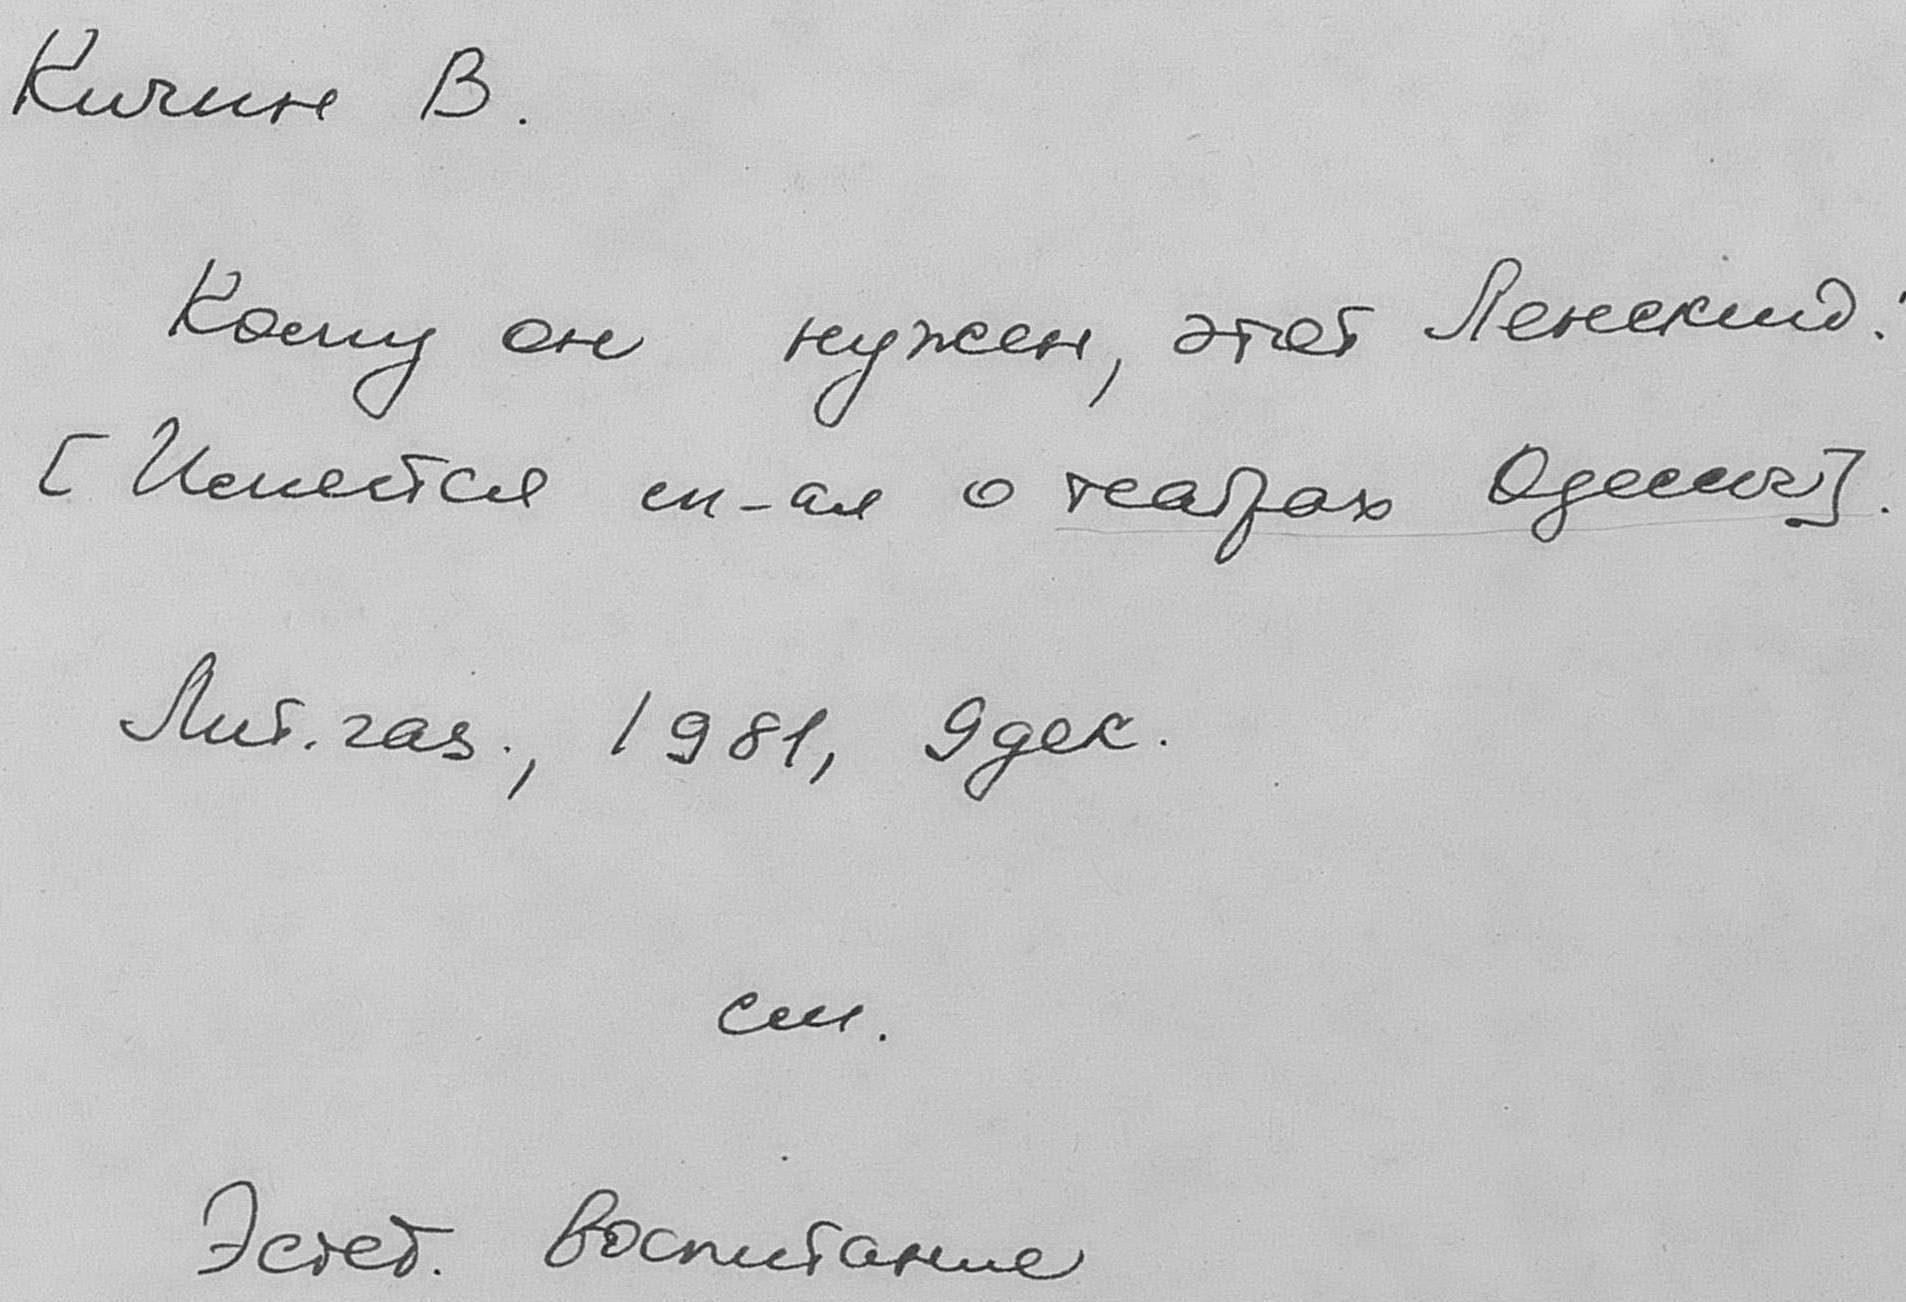 Кичин В.
Кому он нужен, этот Ленский?
[Имеется м-ал о театрах Одессы].
Лит. газ., 1981, 9 дек.
см.
Эстет. воспитание